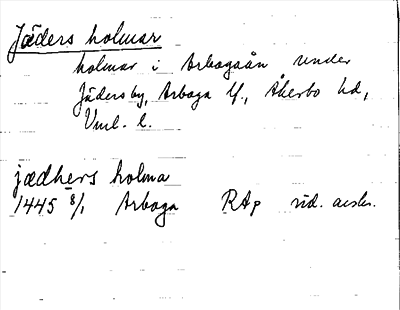 Jäders holmar
holmar i Arbogaån under
Jädersby, Arboga lf., Åkerbo hd,
Vml. l.
jædhers holma
1445 8/1 Arboga RAp vid. avskr.